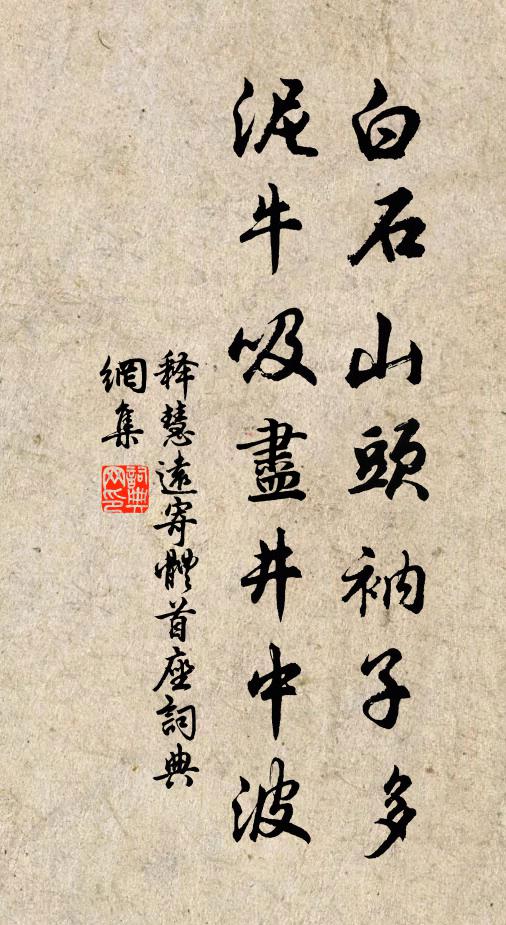 白石山頭衲子多
泥牛吸盡井中波
释慧遠寄體首座詞典
網集
詞典
网印